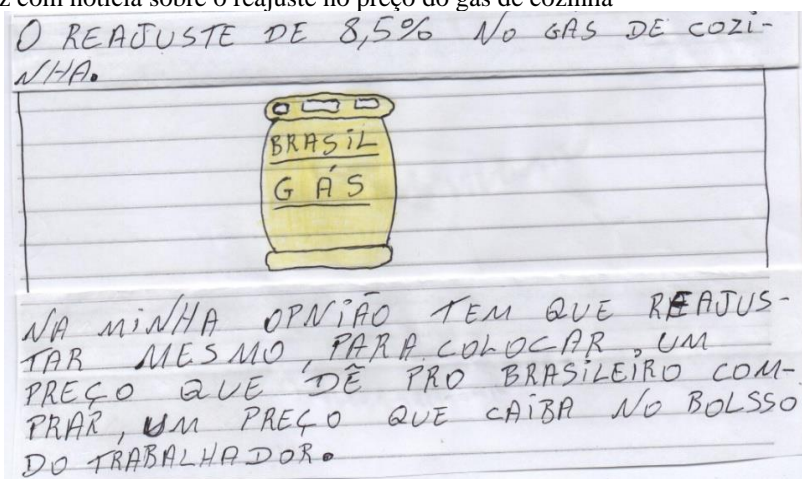 z com notícia sobre o reajuste no preço do gás de cozinha
O REAJUSTE DE 8,5% NO GÁS DE COZI-
NHA.
BRASIL
GÁS
NA MINHA OPNIÃO TEM QUE REAJUS-
TAR MESMO, PARA COLOCAR UM
PREÇO QUE DÊ PRO BRASILEIRO COM-
PRAR, UM PREÇO QUE CAIBA NO BOLSSO
DO TRABALHADOR.